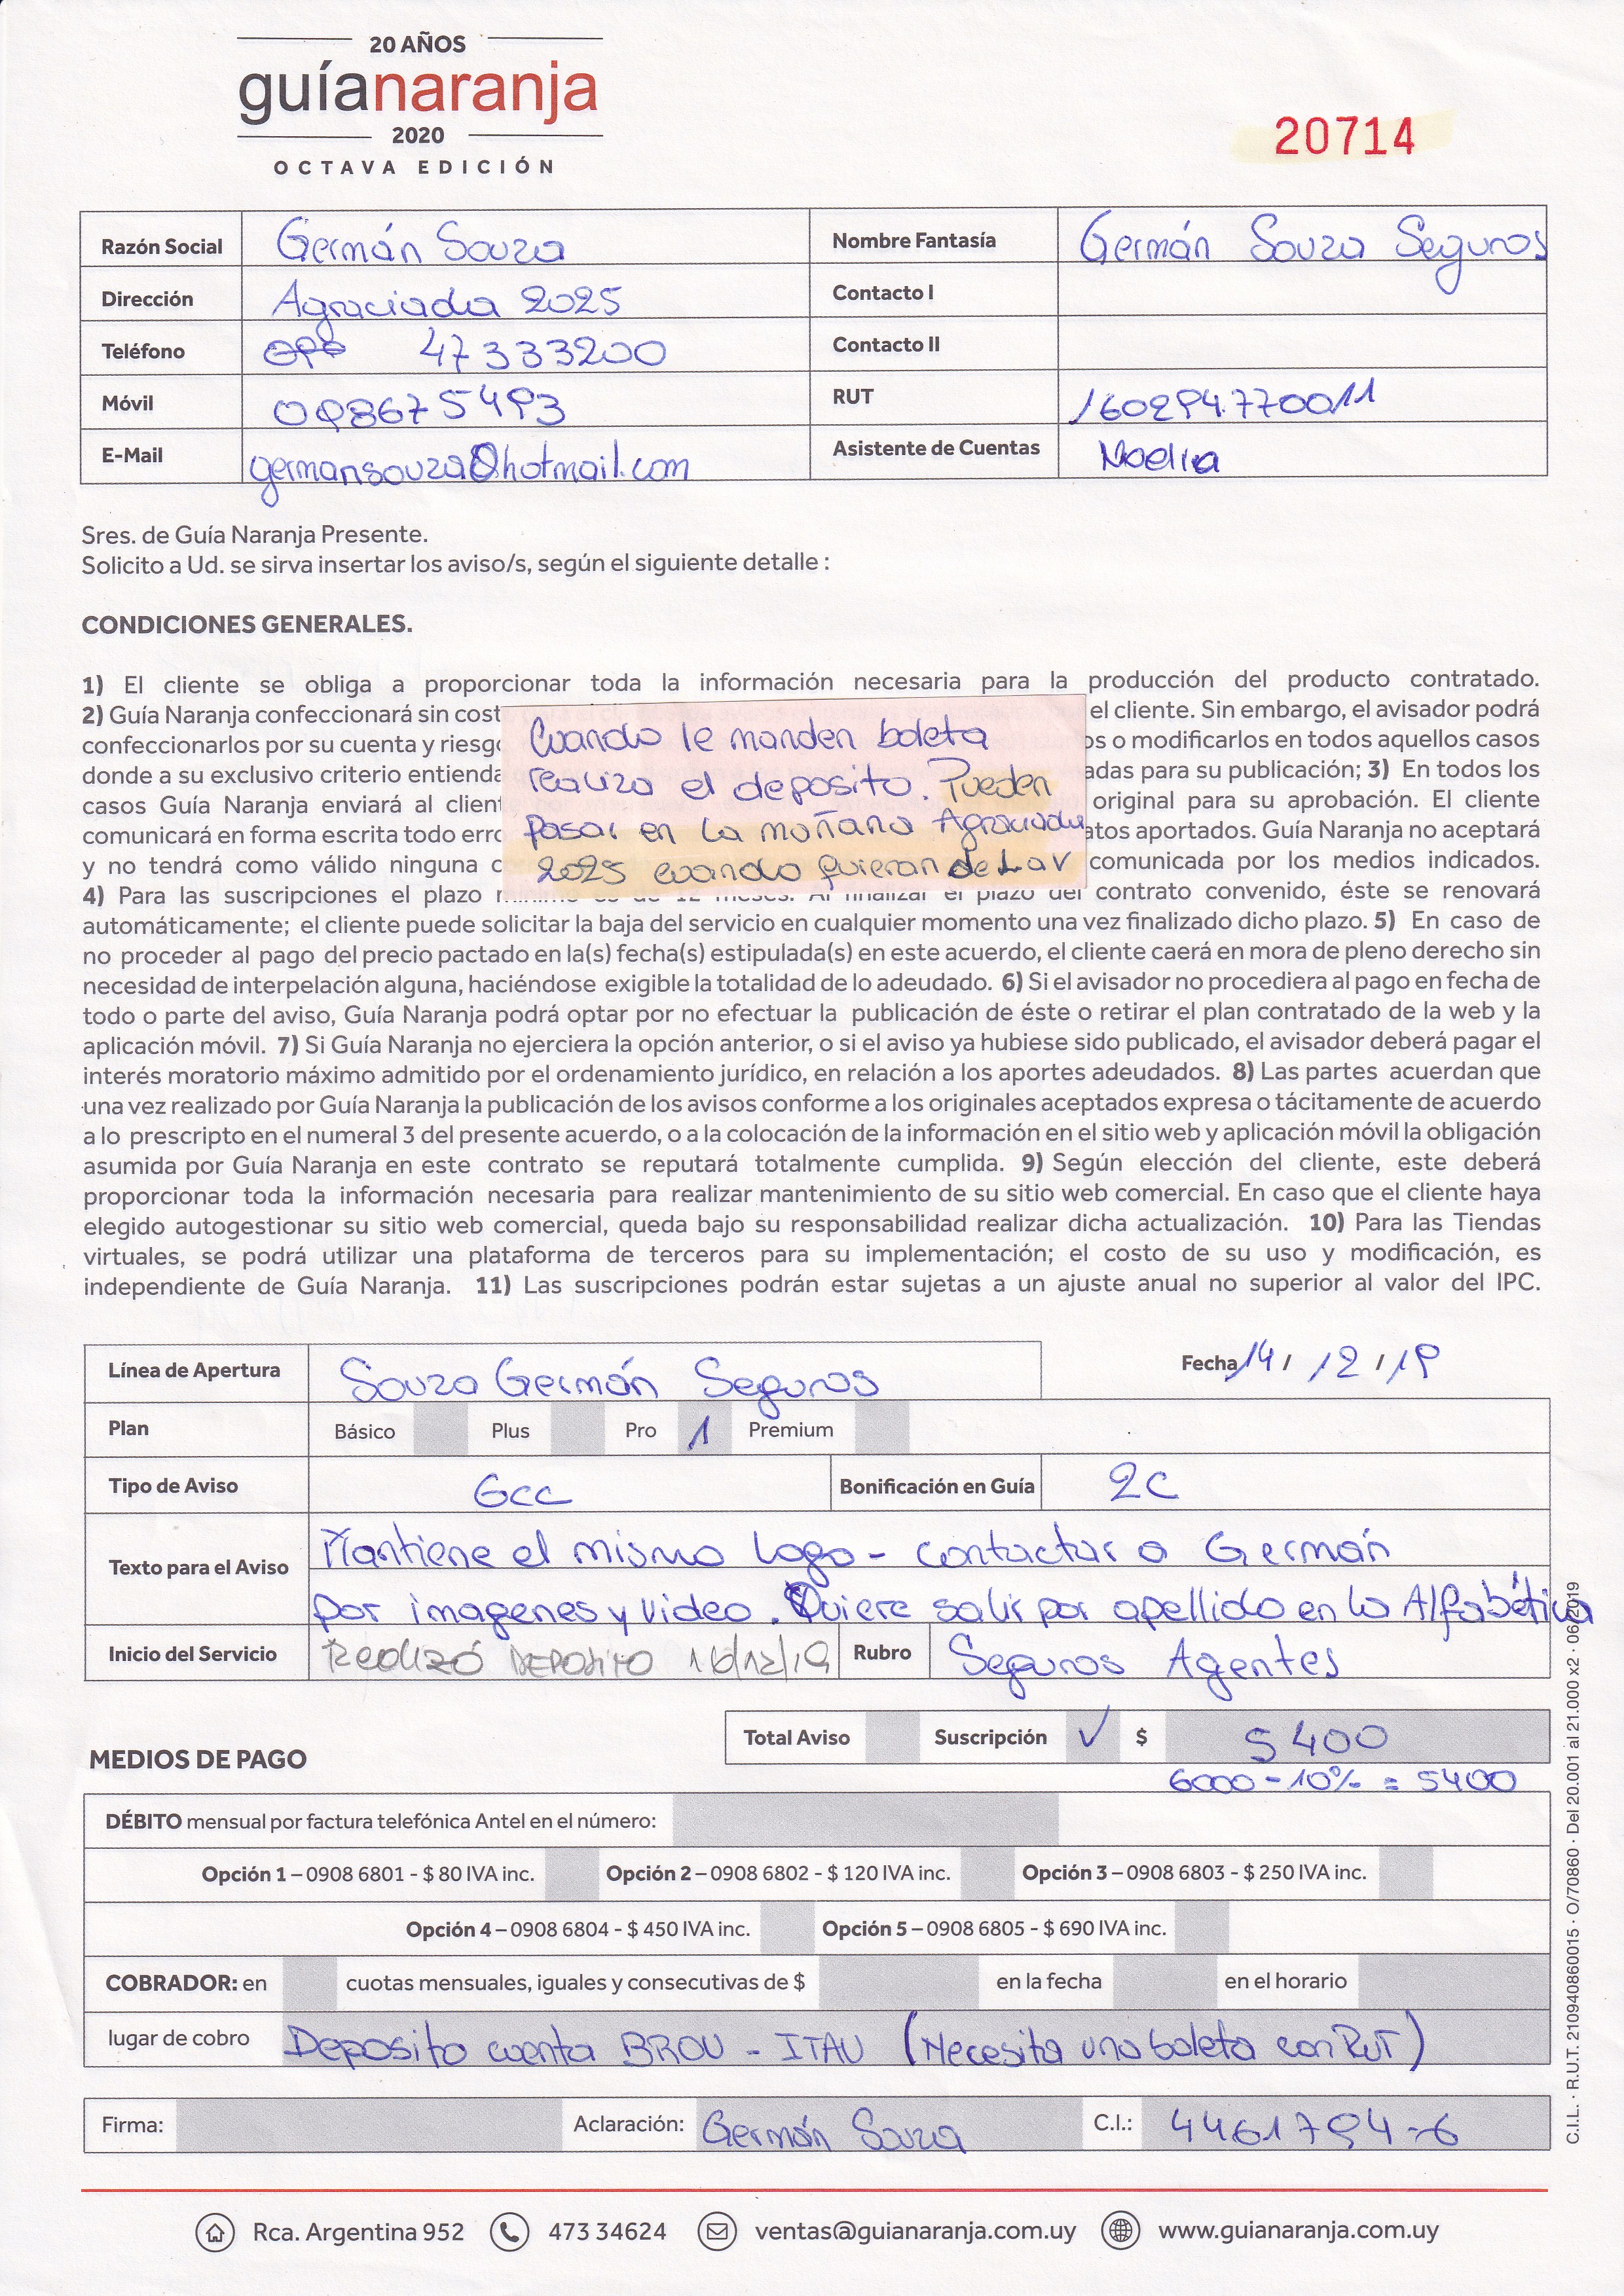 20 AÑOS
guíanaranja
2020
OCTAVA EDICIÓN
20714
Razón Social Germán Souza Nombre Fantasía Germán Souza Seguros
Dirección Agraciada 2025 Contacto I
Teléfono 47333200 Contacto II
Móvil 098675493 RUT 160294770011
E-Mail germansouza@hotmail.com Asistente de Cuentas Noelia
Sres. de Guía Naranja Presente.
Solicito a Ud. se sirva insertar los aviso/s, según el siguiente detalle :
CONDICIONES GENERALES.
1) El cliente se obliga a proporcionar toda la información necesaria para la producción del producto contratado.
2) Guía Naranja confeccionará sin cost el cliente. Sin embargo, el avisador podrá
confeccionarlos por su cuenta y riesg os o modificarlos en todos aquellos casos
donde a su exclusivo criterio entienda adas para su publicación; 3) En todos los
casos Guía Naranja enviará al client original para su aprobación. El cliente
comunicará en forma escrita todo erro atos aportados. Guía Naranja no aceptará
y no tendrá como válido ninguna c comunicada por los medios indicados.
Cuando le manden boleta
realiza el deposito. Pueden
pasar en la mañana Agraciada
2025 cuando quieran de L a V
4) Para las suscripciones el plazo mínimo es de 12 meses. Al finalizar el plazo del contrato convenido, éste se renovará
automáticamente; el cliente puede solicitar la baja del servicio en cualquier momento una vez finalizado dicho plazo. 5) En caso de
no proceder al pago del precio pactado en la(s) fecha(s) estipulada(s) en este acuerdo, el cliente caerá en mora de pleno derecho sin
necesidad de interpelación alguna, haciéndose exigible la totalidad de lo adeudado. 6) Si el avisador no procediera al pago en fecha de
todo o parte del aviso, Guía Naranja podrá optar por no efectuar la publicación de éste o retirar el plan contratado de la web y la
aplicación móvil. 7) Si Guía Naranja no ejerciera la opción anterior, o si el aviso ya hubiese sido publicado, el avisador deberá pagar el
interés moratorio máximo admitido por el ordenamiento jurídico, en relación a los aportes adeudados. 8) Las partes acuerdan que
una vez realizado por Guía Naranja la publicación de los avisos conforme a los originales aceptados expresa o tácitamente de acuerdo
a lo prescripto en el numeral 3 del presente acuerdo, o a la colocación de la información en el sitio web y aplicación móvil la obligación
asumida por Guía Naranja en este contrato se reputará totalmente cumplida. 9) Según elección del cliente, este deberá
proporcionar toda la información necesaria para realizar mantenimiento de su sitio web comercial. En caso que el cliente haya
elegido autogestionar su sitio web comercial, queda bajo su responsabilidad realizar dicha actualización. 10) Para las Tiendas
virtuales, se podrá utilizar una plataforma de terceros para su implementación; el costo de su uso y modificación, es
independiente de Guía Naranja. 11) Las suscripciones podrán estar sujetas a un ajuste anual no superior al valor del IPC.
Línea de Apertura Souza Germán Seguros Fecha 14 / 12 / 19
Plan Básico Plus Pro 1 Premium
Tipo de Aviso 6cc Bonificación en Guía 2C
Texto para el Aviso Mantiene el mismo logo - contactar a Germán
por imagenes y video. Quiere salir por apellido en la Alfabética
Inicio del Servicio REALIZÓ DEPOSITO 16/12/19 Rubro Seguros Agentes
Total Aviso Suscripción ✓ $ 5400
6000 - 10% = 5400
MEDIOS DE PAGO
DÉBITO mensual por factura telefónica Antel en el número:
Opción 1 – 0908 6801 - $ 80 IVA inc. Opción 2 – 0908 6802 - $ 120 IVA inc. Opción 3 – 0908 6803 - $ 250 IVA inc.
Opción 4 – 0908 6804 - $ 450 IVA inc. Opción 5 – 0908 6805 - $ 690 IVA inc.
COBRADOR: en cuotas mensuales, iguales y consecutivas de $ en la fecha en el horario
lugar de cobro Deposito cuenta BROU - ITAU (Necesita una boleta con RUT)
Firma: Aclaración: Germán Souza C.I.: 4461794-6
Rca. Argentina 952 473 34624 ventas@guianaranja.com.uy www.guianaranja.com.uy
C.I.L. · R.U.T. 210940860015 · O/70860 · Del 20.001 al 21.000 x2 · 06/2019